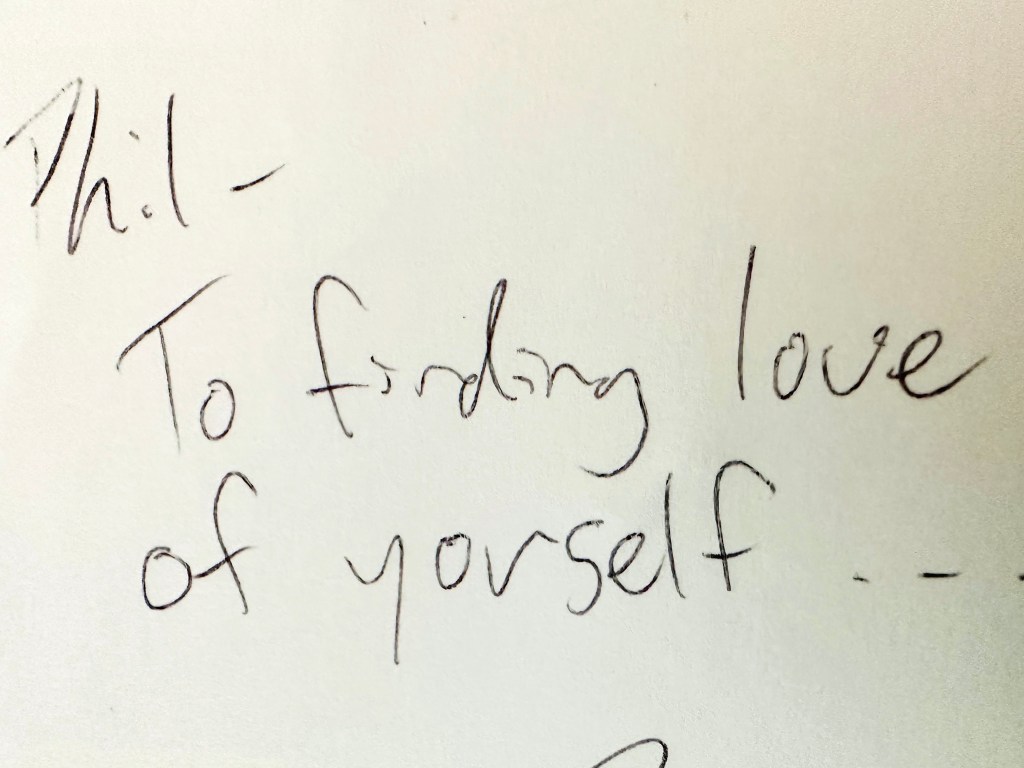 Phil -
To finding love
of yourself ...